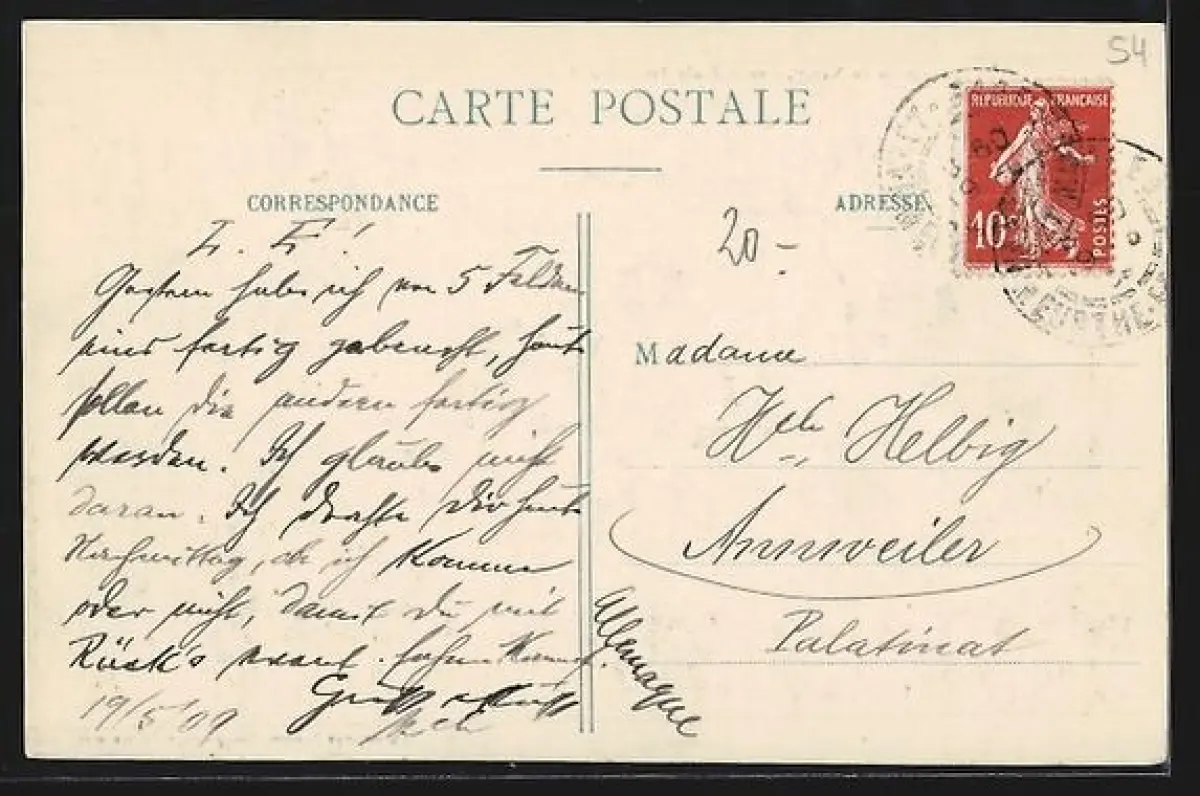 54
CARTE POSTALE
CORRESPONDANCE
ADRESSE
REPUBLIQUE FRANÇAISE
10c
POSTES
20-
L. E.!
Gestern habe ich von 5 Feldern
eins fertig gebracht, heute
sollen die andern fertig
werden. Ich glaube nicht
daran. Ich drahte Dir heute
Nachmittag, ob ich komme
oder nicht, damit Du mit
Rück's
Gruß & Kuß
19/5 09
Madame
Wb. Helbig
Annweiler
Palatinat
Allemagne